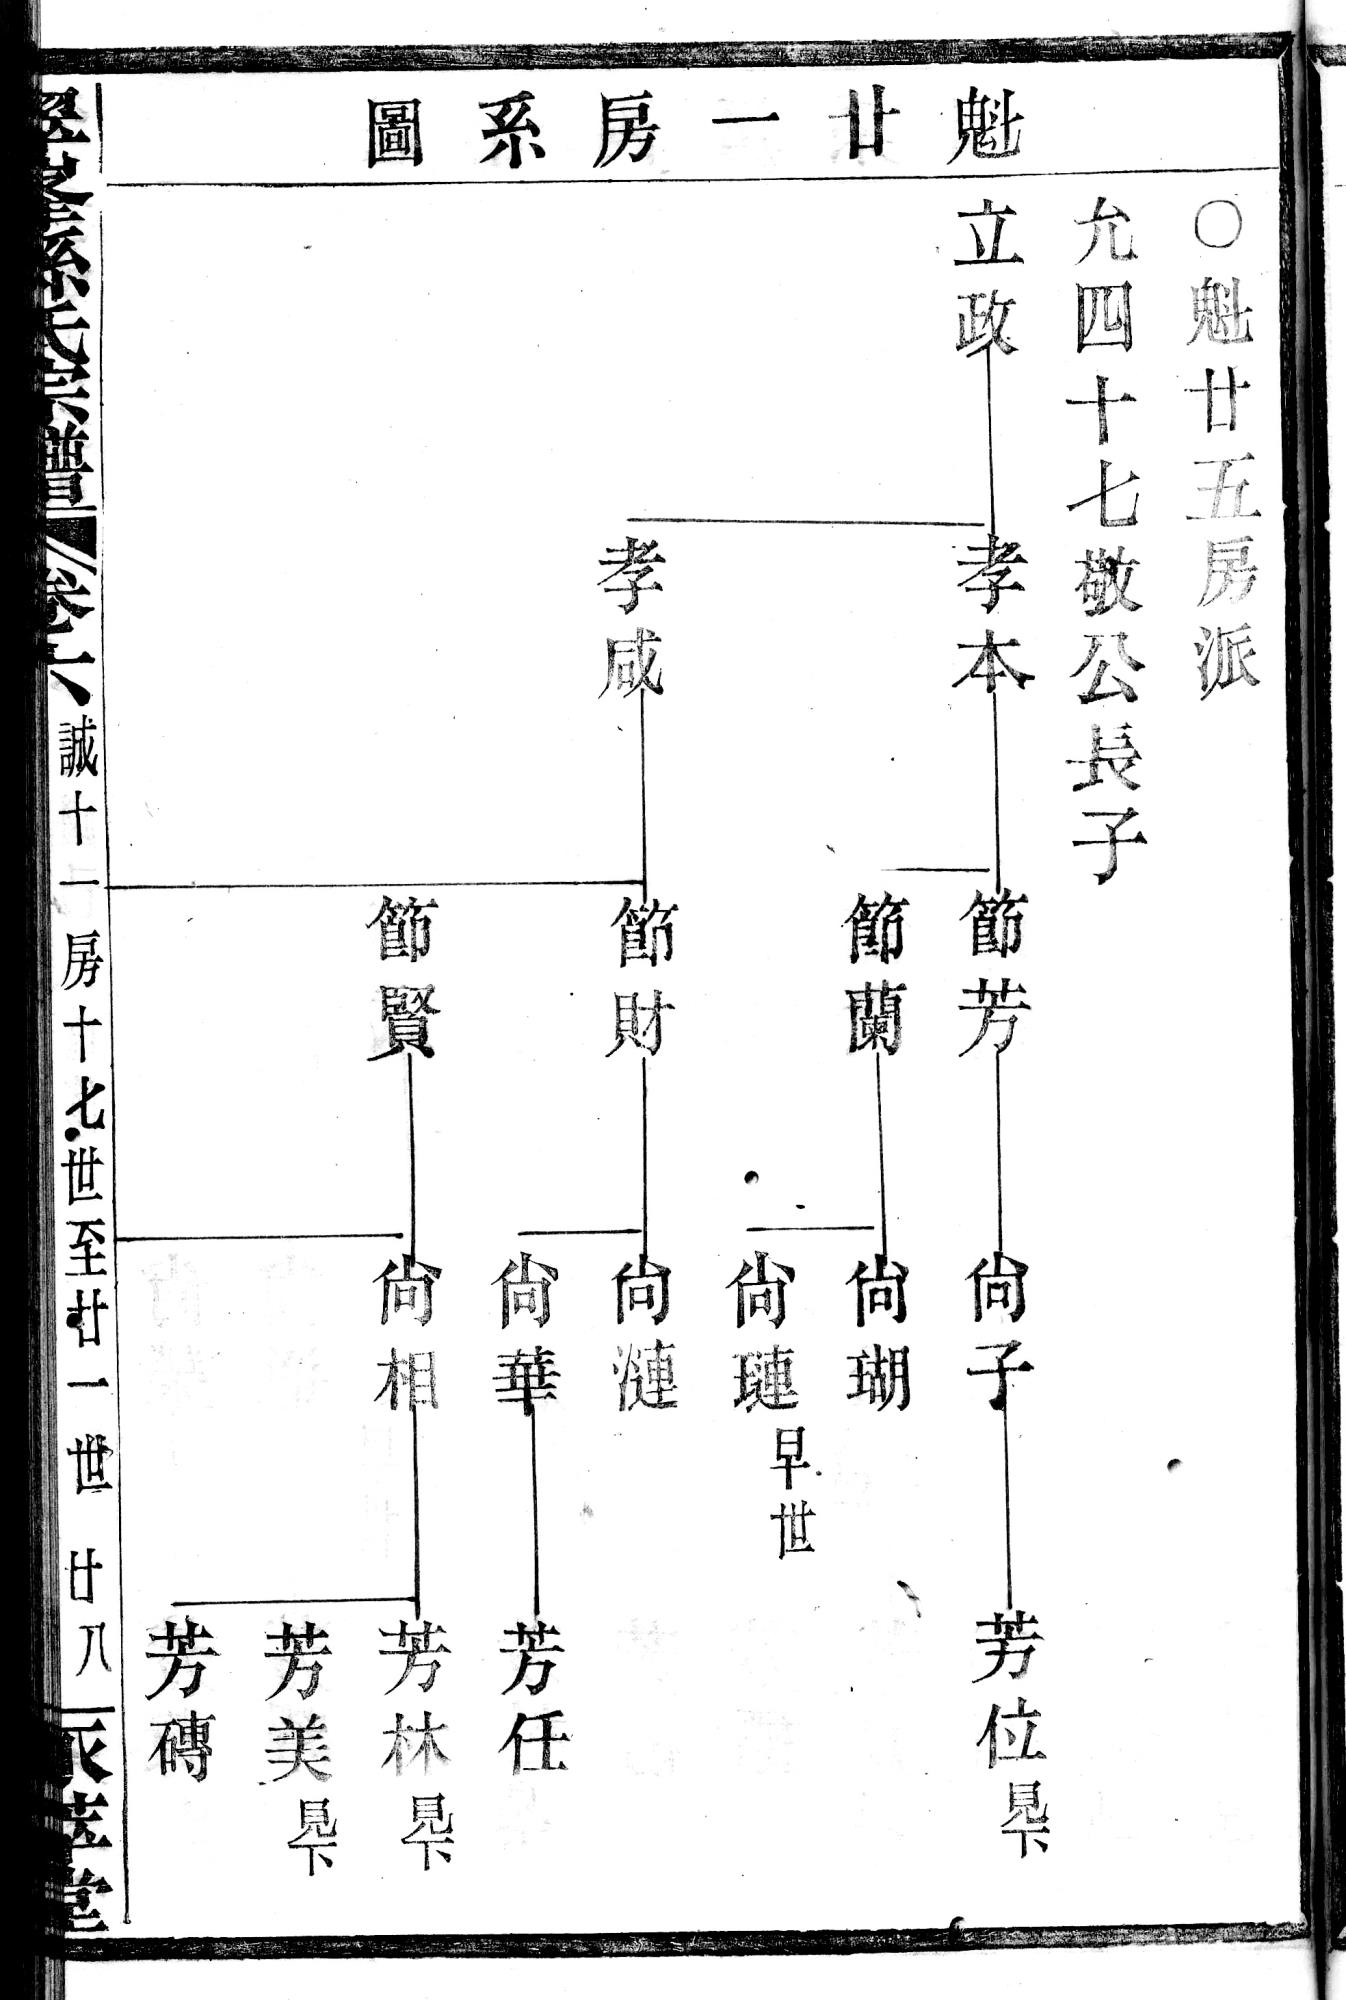 魁廿一房系圖
○魁廿五房派
允四十七敬公長子
立政
孝本
孝咸
節芳
節蘭
節財
節賢
尙子
尙瑚
尙璉早世
尙漣
尙華
尙相
芳位見下
芳任
芳林見下
芳美見下
芳磚
孫氏宗譜 卷六 誠十一房十七世至廿一世 廿八 堂